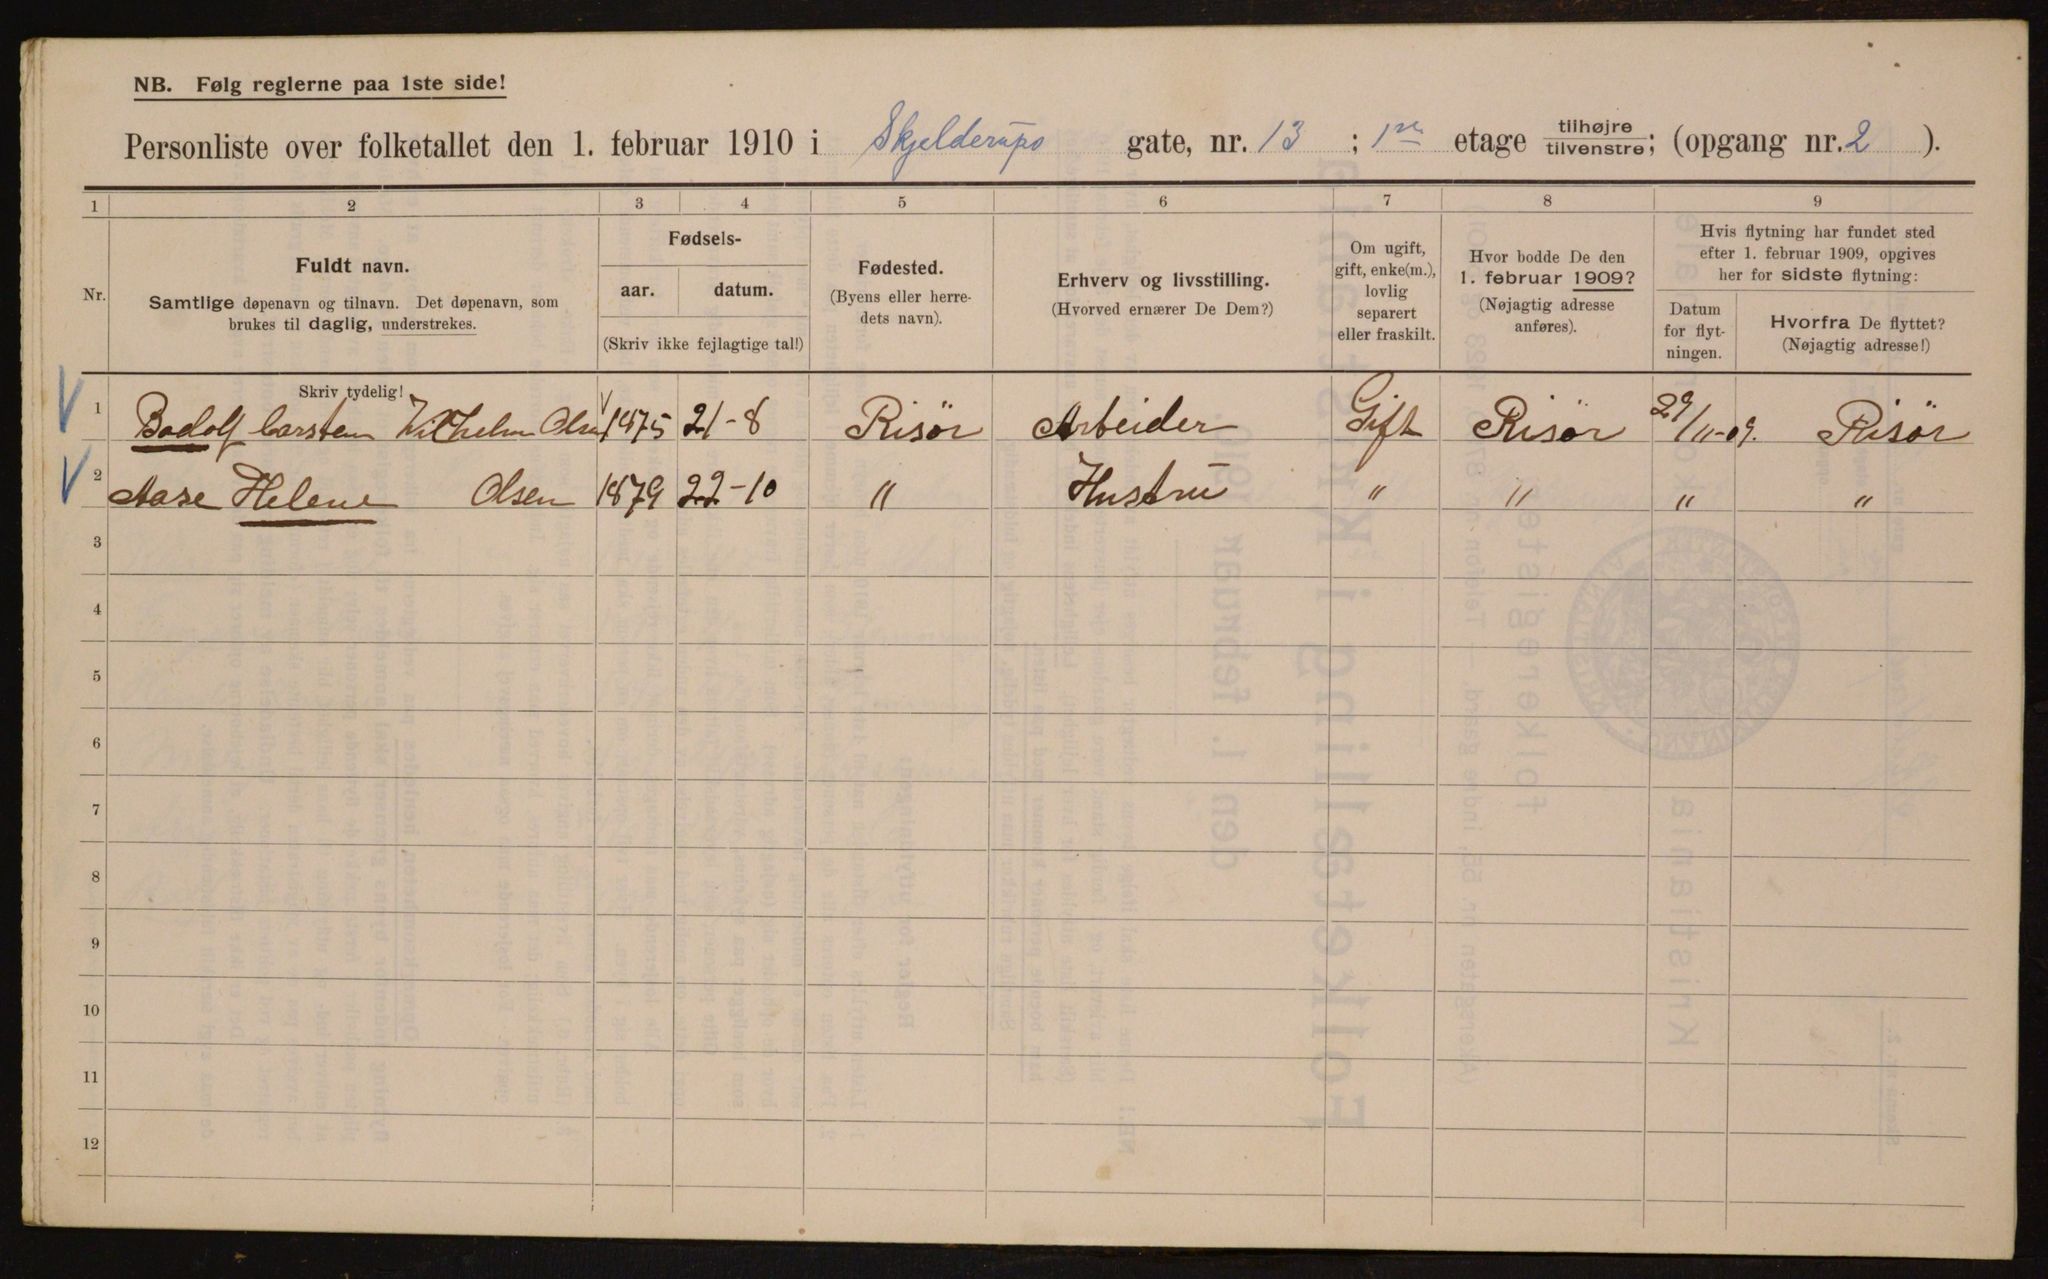 NB. Følg reglerne paa 1ste side!
Personliste over folketallet den 1. februar 1910 i Skjelderups gate, nr. 13 ; 1ste etage tilhøjre tilvenstre; (opgang nr. 2 ).
1 2 3 4 5 6 7 8 9
Nr.
Fuldt navn.
Samtlige døpenavn og tilnavn. Det døpenavn, som
brukes til daglig, understrekes.
Fødsels-
aar. datum.
(Skriv ikke fejlagtige tal!)
Fødested.
(Byens eller herre-
dets navn).
Erhverv og livsstilling.
(Hvorved ernærer De Dem?)
Om ugift,
gift, enke(m.),
lovlig
separert
eller fraskilt.
Hvor bodde De den
1. februar 1909?
(Nøjagtig adresse
anføres).
Hvis flytning har fundet sted
efter 1. februar 1909, opgives
her for sidste flytning:
Datum
for flyt-
ningen.
Hvorfra De flyttet?
(Nøjagtig adresse!)
Skriv tydelig!
1 Bodolf Carsten Vilhelm Olsen 1875 21-8 Risør Arbeider Gift Risør 29/11-09. Risør
2 Aase Helene Olsen 1879 22-10 " Hustru " " " "
3
4
5
6
7
8
9
10
11
12